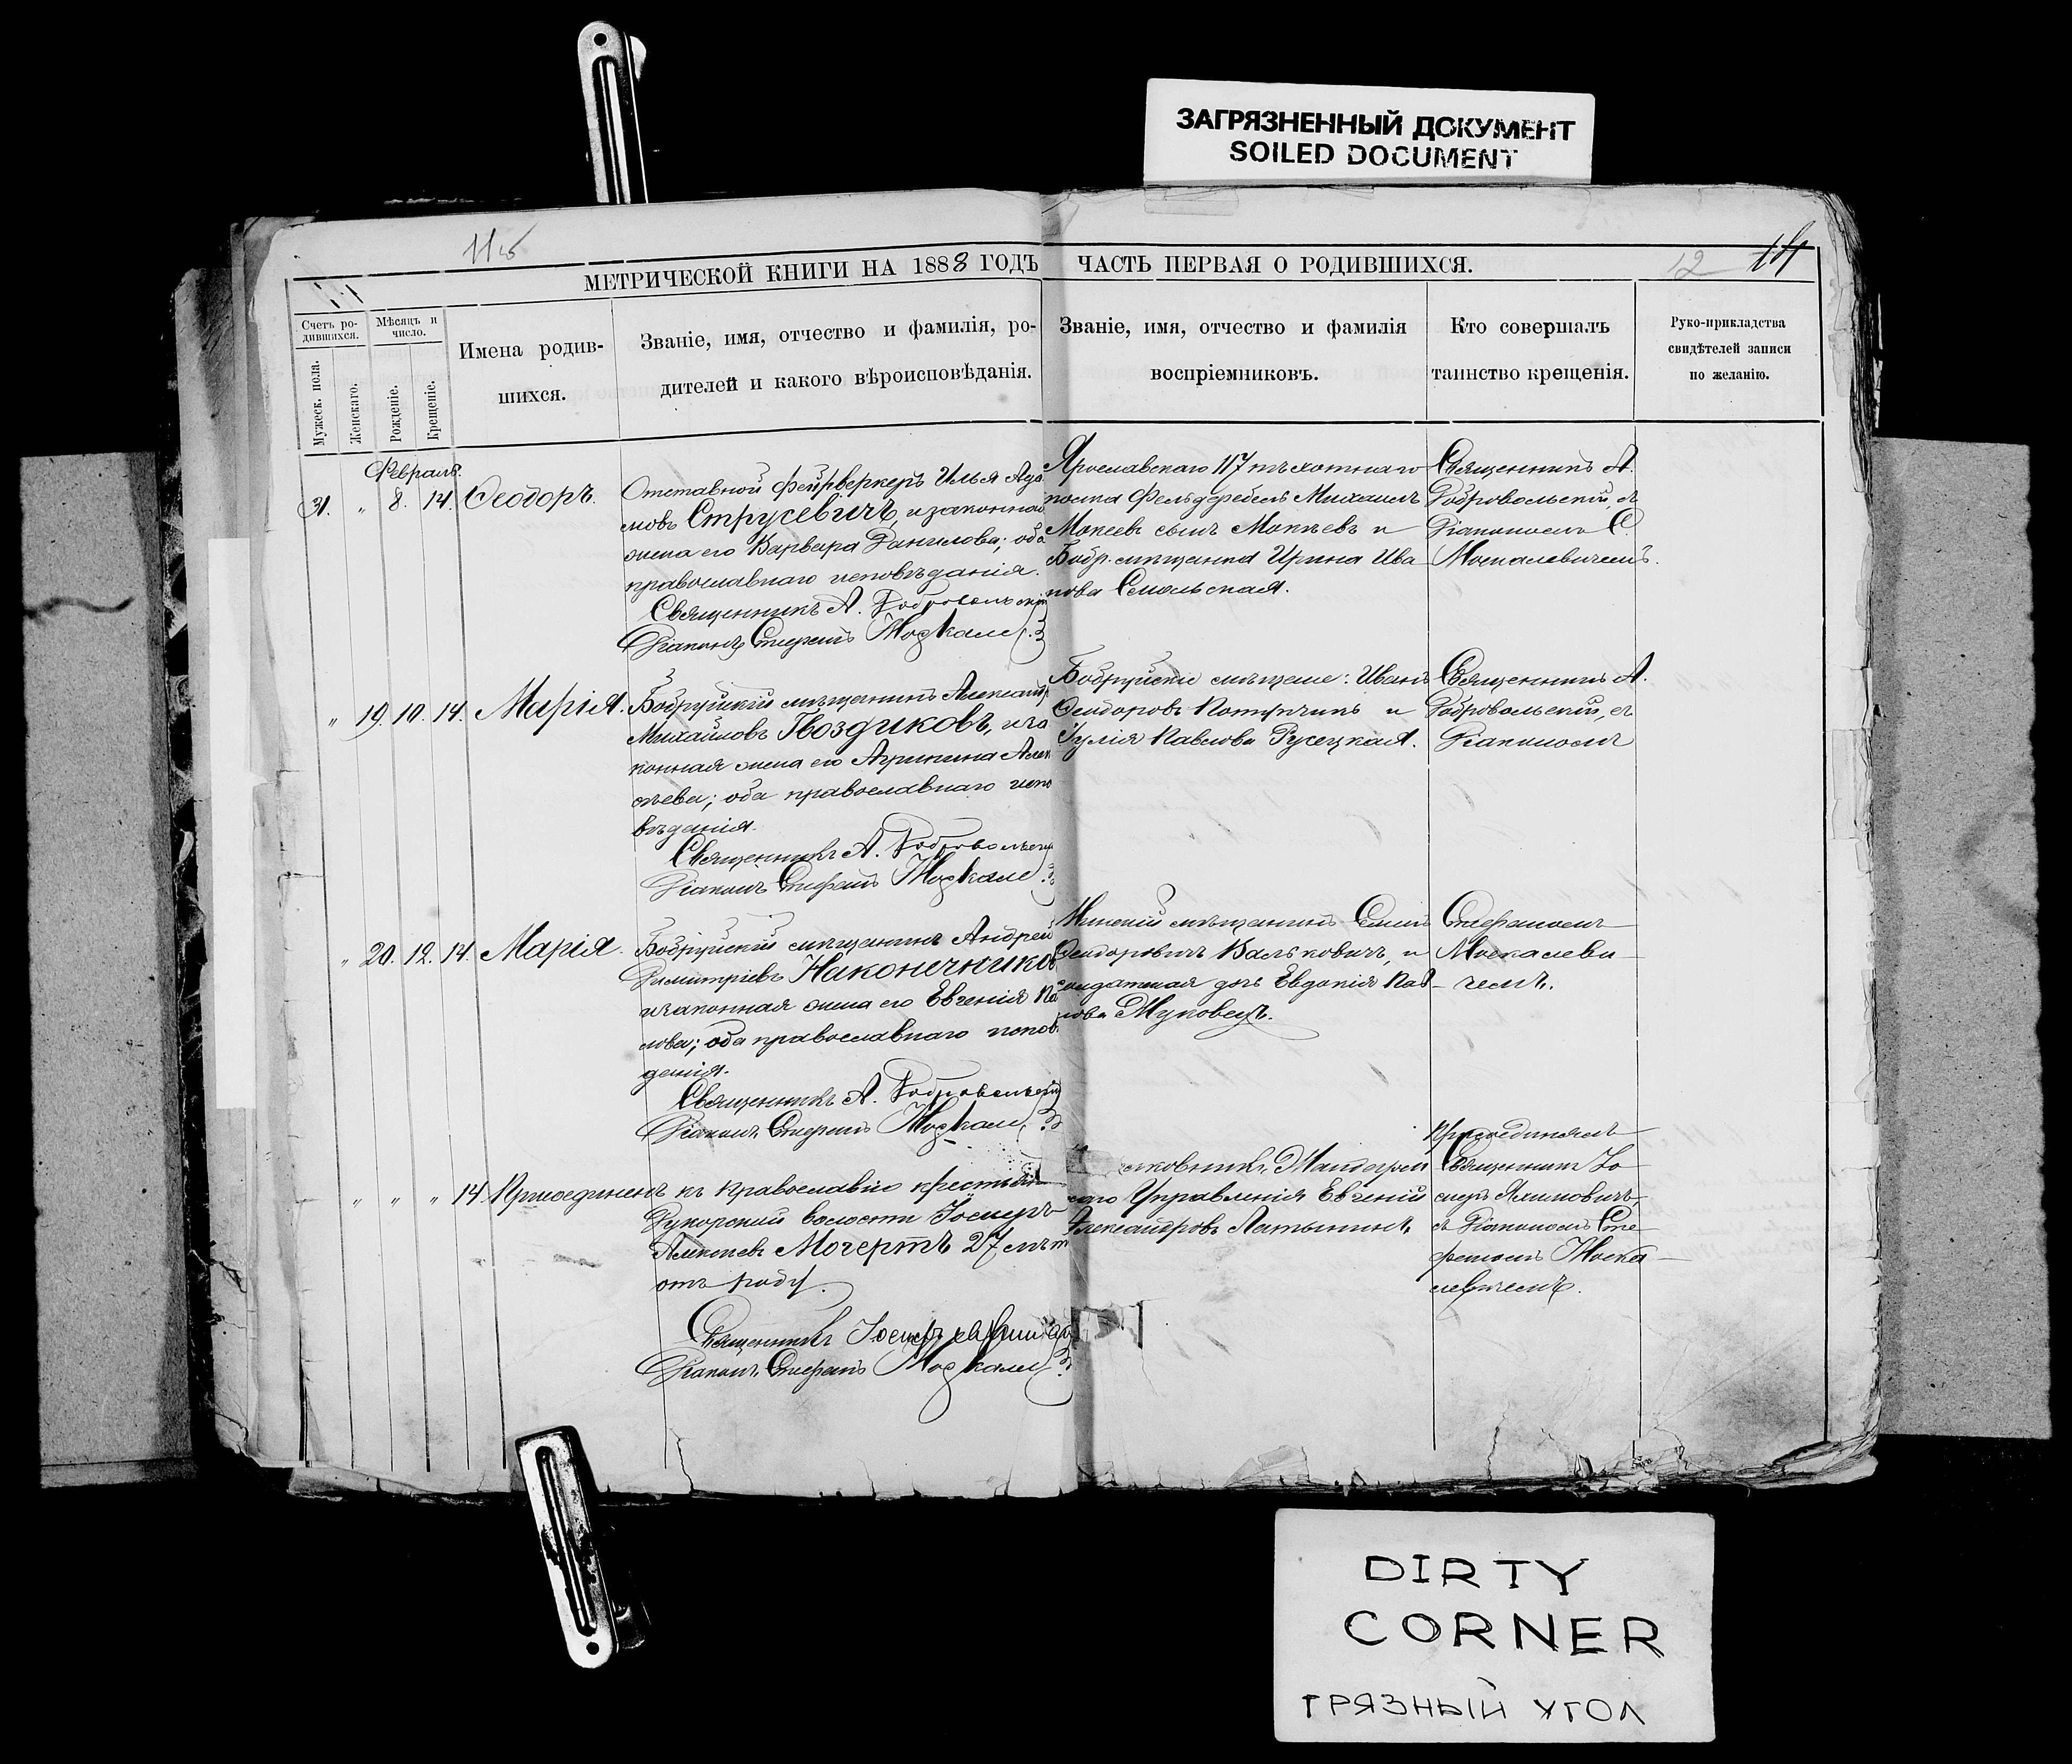 ЗАГРЯЗНЕННЫЙ ДОКУМЕНТ
SOILED DOCUMENT
11об
12
МЕТРИЧЕСКОЙ КНИГИ НА 1888 ГОДЪ ЧАСТЬ ПЕРВАЯ О РОДИВШИХСЯ.
Счетъ ро-
дившихся.
Мужеск. пола.
Женскаго.
Мѣсяцъ и
число.
Рожденіе.
Крещеніе.
Имена родив-
шихся.
Званіе, имя, отчество и фамилія, ро-
дителей и какого вѣроисповѣданія.
Званіе, имя, отчество и фамилія
воспріемниковъ.
Кто совершалъ
таинство крещенія.
Руко-прикладства
свидѣтелей записи
по желанію.
Февраль.
„ 8. 14. Ѳеодоръ.
Отставной фейрверкеръ Илья
Струсевичъ, и законная
жена его Варвара Данилова; оба
православнаго исповѣданія.
Священникъ А. Добровольскій
Діаконъ Стефанъ Москале
Ярославскаго 117 пѣхотнаго
полка Фельдфебель Михаилъ
Мокеевъ сынъ Мокѣевъ и
Бобр. мѣщанка Ирина Ива
нова Смольская.
Священникъ А.
Добровольскій, съ
Діакономъ С.
Москалевичемъ.
„ 19. 10. 14. Марія.
Бобруйскій мѣщанинъ Александръ
Михайловъ Гвоздиковъ, и за
конная жена его Агрипина Алек
сѣева; оба православнаго испо
вѣданія.
Священникъ А. Добровольскій
Діаконъ Стефанъ Москале
Бобруйскіе мѣщане: Иванъ
Ѳеодоровъ и
Іулія Павлова Русецкая.
Священникъ А.
Добровольскій, съ
Діакономъ
„ 20. 12. 14. Марія.
Бобруйскій мѣщанинъ Андрей
Димитріевъ Наконечниковъ
и законная жена его Евгенія Па
лова; оба православнаго исповѣ
данія.
Священникъ А. Добровольскій
Діаконъ Стефанъ Москале
Минскій мѣщанинъ
Ѳеодоровичъ Вальковичъ, и
солдатская дочь Евдокія Пав
лова Муковецъ.
Стефаномъ
Москалеви
чемъ.
„ „ „ 14. Присоединенъ къ православію крестьянинъ
Дукорской волости Іосифъ
Алексѣевъ Мочертъ 27 лѣтъ
отъ роду.
Священникъ Іосифъ
Діаконъ Стефанъ Москале
Управленія Евгеній
Александровъ Латынинъ
Присоединялъ
Священникъ Іо
сифъ Якимовичъ
съ Діакономъ Сте
фаномъ Моска
левичемъ.
DIRTY
CORNER
ГРЯЗНЫЙ УГОЛ